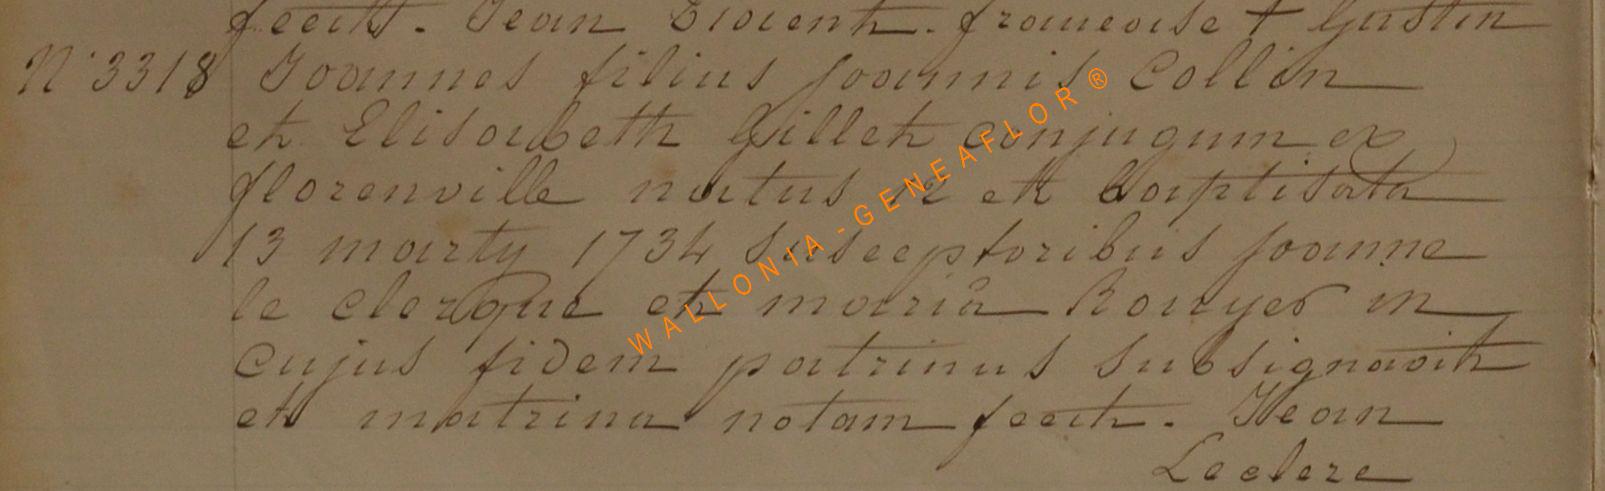 fecit. Jean francoise + Gustin
N° 3318 Joannes filius joannis Collin
et Elisabeth Gillet conjugum ex
florenville natus 12 et baptisata
13 marty 1734 susceptoribus joanne
le clerque et maria Rouyer in
cujus fidem patrinus subsignavit
et matrina notam fecit. Jean
Leclere
WALLONIA-GENEAFLOR®